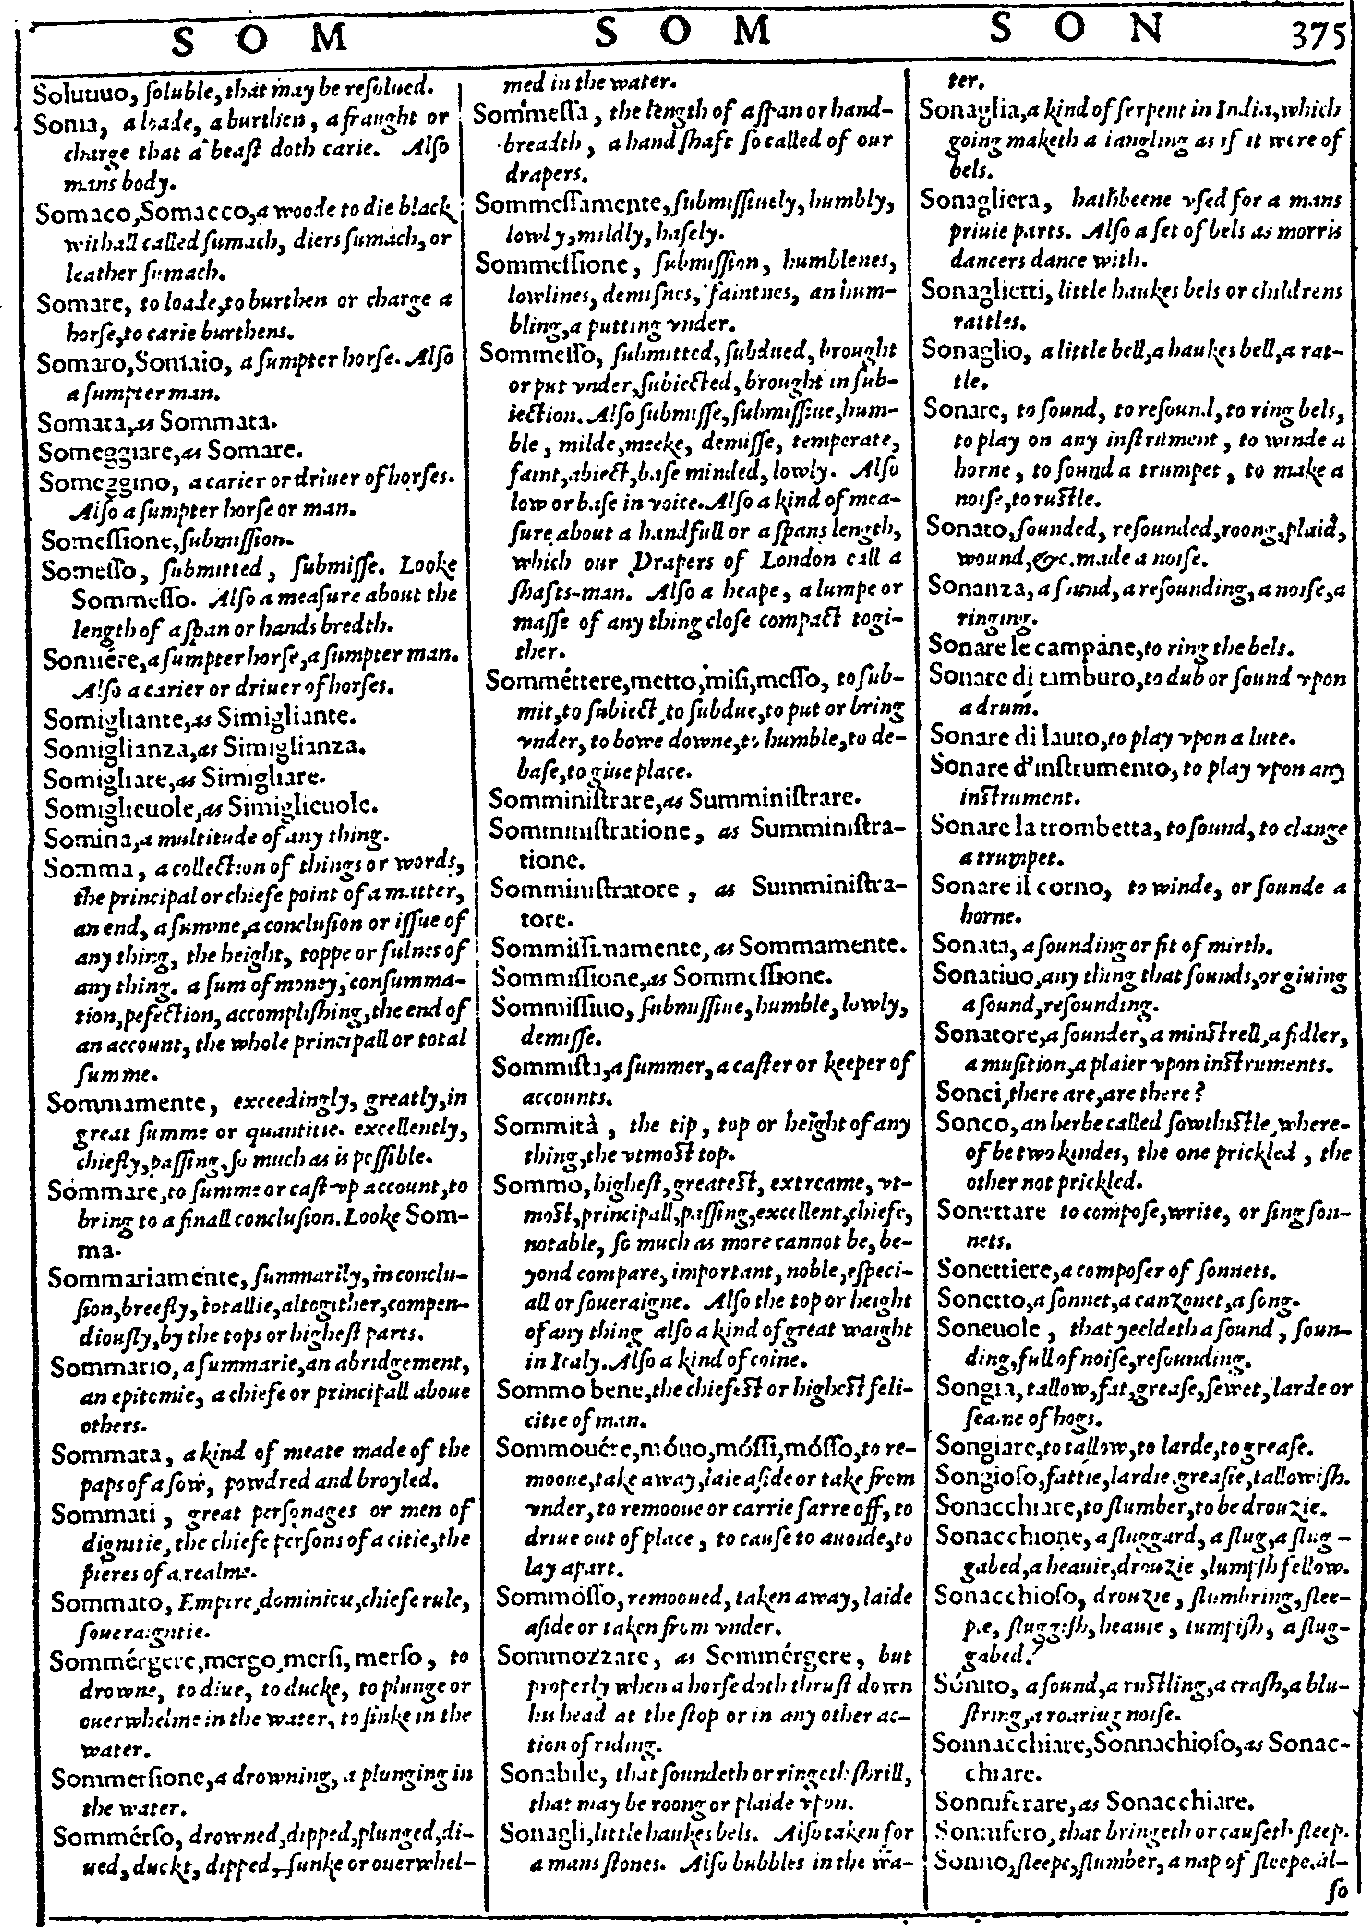 SOM SOM SON 375
Solutiuo, soluble, that may be resolued.
Soma, a loade, a burthen, a fraught or
charge that a beast doth carie. Also
mans body.
Somaco, Somacco, a woode to die black
withall called sumach, diers sumach, or
leather sumach.
Somare, to loade, to burthen or charge a
horse, to carie burthens.
Somaro, Somaio, a sumpter horse. Also
a sumpter man.
Somata, as Sommata.
Someggiare, as Somare.
Someggino, a carier or driuer of horses.
Also a sumpter horse or man.
Somessione, submission.
Somesso, submitted, submisse. Looke
Sommesso. Also a measure about the
length of a span or hands bredth.
Somiére, a sumpter horse, a sumpter man.
Also a carier or driuer of horses.
Somigliante, as Simigliante.
Somiglianza, as Simiglianza.
Somigliare, as Simigliare.
Somiglieuole, as Simiglieuole.
Somina, a multitude of any thing.
Somma, a collection of things or words,
the principal or chiefe point of a matter,
an end, a summe, a conclusion or issue of
any thing, the height, toppe or fulnes of
any thing. a sum of money, consumma-
tion, pefection, accomplishing, the end of
an account, the whole principall or total
summe.
Sommamente, exceedingly, greatly, in
great summe or quantitie. excellently,
chiefly, passing, so much as is possible.
Sommare, to summe or cast vp account, to
bring to a finall conclusion. Looke Som-
ma.
Sommariamente, summarily, in conclu-
sion, breefly, totallie, altogither, compen-
diously, by the tops or highest parts.
Sommario, a summarie, an abridgement,
an epitomie, a chiefe or principall aboue
others.
Sommata, a kind of meate made of the
paps of a sow, powdred and broyled.
Sommati, great personages or men of
dignitie, the chiefe persons of a citie, the
pieres of a realme.
Sommato, Empire, dominion, chiefe rule,
soueraigntie.
Sommérgere, mergo, mersi, merso, to
drowne, to diue, to ducke, to plunge or
ouerwhelme in the water, to sinke in the
water.
Sommersione, a drowning, a plunging in
the water.
Sommérso, drowned, dipped, plunged, di-
ued, duckt, dipped, sunke or ouerwhel-
med in the water.
Sommessa, the length of a span or hand-
breadth, a handshaft so called of our
drapers.
Sommessamente, submissiuely, humbly,
lowly, mildly, basely.
Sommessione, submission, humblenes,
lowlines, demisnes, faintnes, an hum-
bling, a putting vnder.
Sommesso, submitted, subdued, brought
or put vnder, subiected, brought in sub-
iection. Also submisse, submissiue, hum-
ble, milde, meeke, demisse, temperate,
faint, abiect, base minded, lowly. Also
low or base in voice. Also a kind of mea-
sure about a handfull or a spans length,
which our Drapers of London call a
shafts-man. Also a heape, a lumpe or
masse of any thing close compact togi-
ther.
Somméttere, metto, misi, messo, to sub-
mit, to subiect, to subdue, to put or bring
vnder, to bowe downe, to humble, to de-
base, to giue place.
Somministrare, as Sumministrare.
Somministratione, as Sumministra-
tione.
Somministratore, as Sumministra-
tore.
Sommissinamente, as Sommamente.
Sommissione, as Sommessione.
Sommissiuo, submissiue, humble, lowly,
demisse.
Sommista, a summer, a caster or keeper of
accounts.
Sommità, the tip, top or height of any
thing, the vtmost top.
Sommo, highest, greatest, extreame, vt-
most, principall, passing, excellent, chiefe,
notable, so much as more cannot be, be-
yond compare, important, noble, especi-
all or soueraigne. Also the top or height
of any thing also a kind of great waight
in Italy. Also a kind of coine.
Sommo bene, the chiefest or highest feli-
citie of man.
Sommouére, móuo, móssi, mósso, to re-
mooue, take away, laie aside or take from
vnder, to remooue or carrie farre off, to
driue out of place, to cause to auoide, to
lay apart.
Sommósso, remooued, taken away, laide
aside or taken from vnder.
Sommozzare, as Sommérgere, but
properly when a horse doth thrust down
his head at the stop or in any other ac-
tion of riding.
Sonabile, that soundeth or ringeth shrill,
that may be roong or plaide vpon.
Sonagli, little haukes bels. Also taken for
a mans stones. Also bubbles in the wa-
ter.
Sonaglia, a kind of serpent in India, which
going maketh a iangling as if it were of
bels.
Sonagliera, hath beene vsed for a mans
priuie parts. Also a set of bels as morris
dancers dance with.
Sonaglietti, little haukes bels or childrens
rattles.
Sonaglio, a little bell, a haukes bell, a rat-
tle.
Sonare, to sound, to resound, to ring bels,
to play on any instrument, to winde a
horne, to sound a trumpet, to make a
noise, to rustle.
Sonato, sounded, resounded, roong, plaid,
wound, &c. made a noise.
Sonanza, a sound, a resounding, a noise, a
ringing.
Sonare le campáne, to ring the bels.
Sonare di tamburo, to dub or sound vpon
a drum.
Sonare di lauto, to play vpon a lute.
Sonare d'instrumento, to play vpon any
instrument.
Sonare la trombetta, to sound, to clange
a trumpet.
Sonare il corno, to winde, or sounde a
horne.
Sonata, a sounding or fit of mirth.
Sonatiuo, any thing that sounds, or giuing
a sound, resounding.
Sonatore, a sounder, a minstrell, a fidler,
a musition, a plaier vpon instruments.
Sonci, there are, are there?
Sonco, an herbe called sowthistle, where-
of be two kindes, the one prickled, the
other not prickled.
Sonettare to compose, write, or sing son-
nets.
Sonettiere, a composer of sonnets.
Sonetto, a sonnet, a canzonet, a song.
Soneuole, that yeeldeth a sound, soun-
ding, full of noise, resounding.
Songia, tallow, fat, grease, sewet, larde or
seame of hogs.
Songiare, to tallow, to larde, to grease.
Songioso, fattie, lardie, greasie, tallowish.
Sonacchiare, to slumber, to be drouzie.
Sonacchione, a sluggard, a slug, a slug-
gabed, a heauie, drouzie, lumpish fellow.
Sonacchioso, drouzie, slumbring, slee-
pie, sluggish, heauie, lumpish, a slug-
gabed.
Sónito, a sound, a rustling, a crash, a blu-
string, a roaring noise.
Sonnacchiare, Sonnachioso, as Sonac-
chiare.
Sonniferare, as Sonacchiare.
Sonnifero, that bringeth or causeth sleep.
Sonno, sleepe, slumber, a nap of sleepe. Al-
so